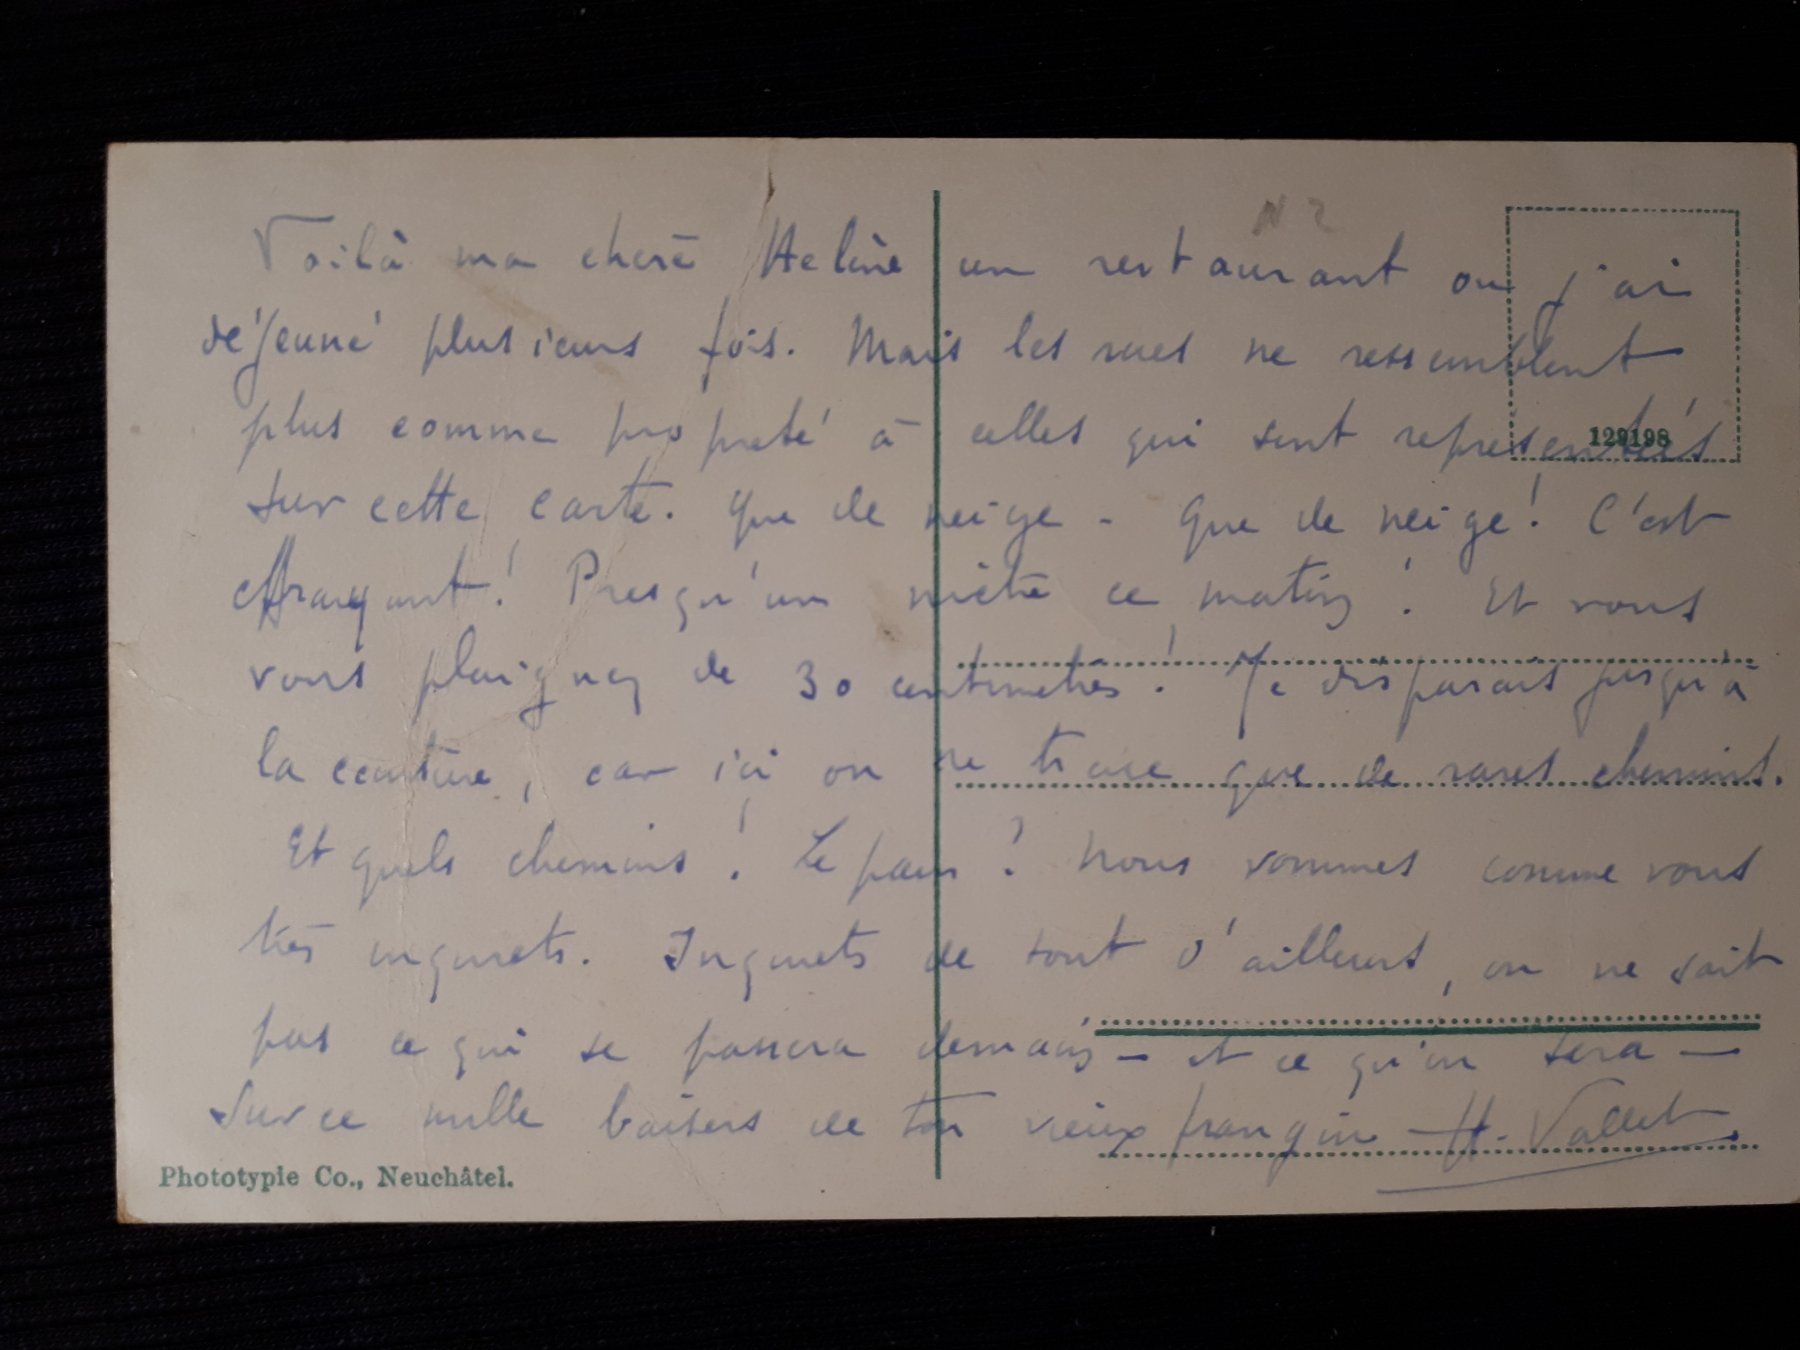 N 2
Voilà ma chère Helène un restaurant ou j'ai
déjeuné plusieurs fois. Mais les rues ne ressemblent
plus comme propreté à celles qui sont représentés
129198
sur cette carte. Que de neige - Que de neige! C'est
effrayant! Presqu'un mètre ce matin! Et vous
vous plaignez de 30 centimètres! Je disparais jusqu'à
la ceinture, car ici on ne trace que de rares chemins.
Et quels chemins! Le pain? Nous sommes comme vous
très inquiets. Inquiets de tout d'ailleurs, on ne sait
pas ce qui se passera demain - et ce qu'on sera -
Sur ce mille baisers de ton vieux frangin H. Vallet
Phototypie Co., Neuchâtel.